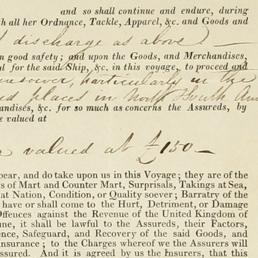 and so shall continue and endure, during
th all her Ordnance, Tackle, Apparel, &c. and Goods and
d discharge as above
n good safety; and upon the Goods, and Merchandises,
al for the said Ship, &c. in this voyage, to proceed and
soever, particularly in the
ed places in North South Am
handises, &c. for so much as concerns the Assureds, by
e valued at
valued at £150—
pear, and do take upon us in this Voyage; they are of the
s of Mart and Counter Mart, Surprisals, Takings at Sea,
at Nation, Condition, or Quality soever; Barratry of the
have or shall come to the Hurt, Detriment, or Damage
Offences against the Revenue of the United Kingdom of
une, it shall be lawful to the Assureds, their Factors,
ence, Safeguard, and Recovery of the said Goods, and
nsurance; to the Charges whereof we the Assurers will
ssured. And it is agreed by us the Insurers, that this